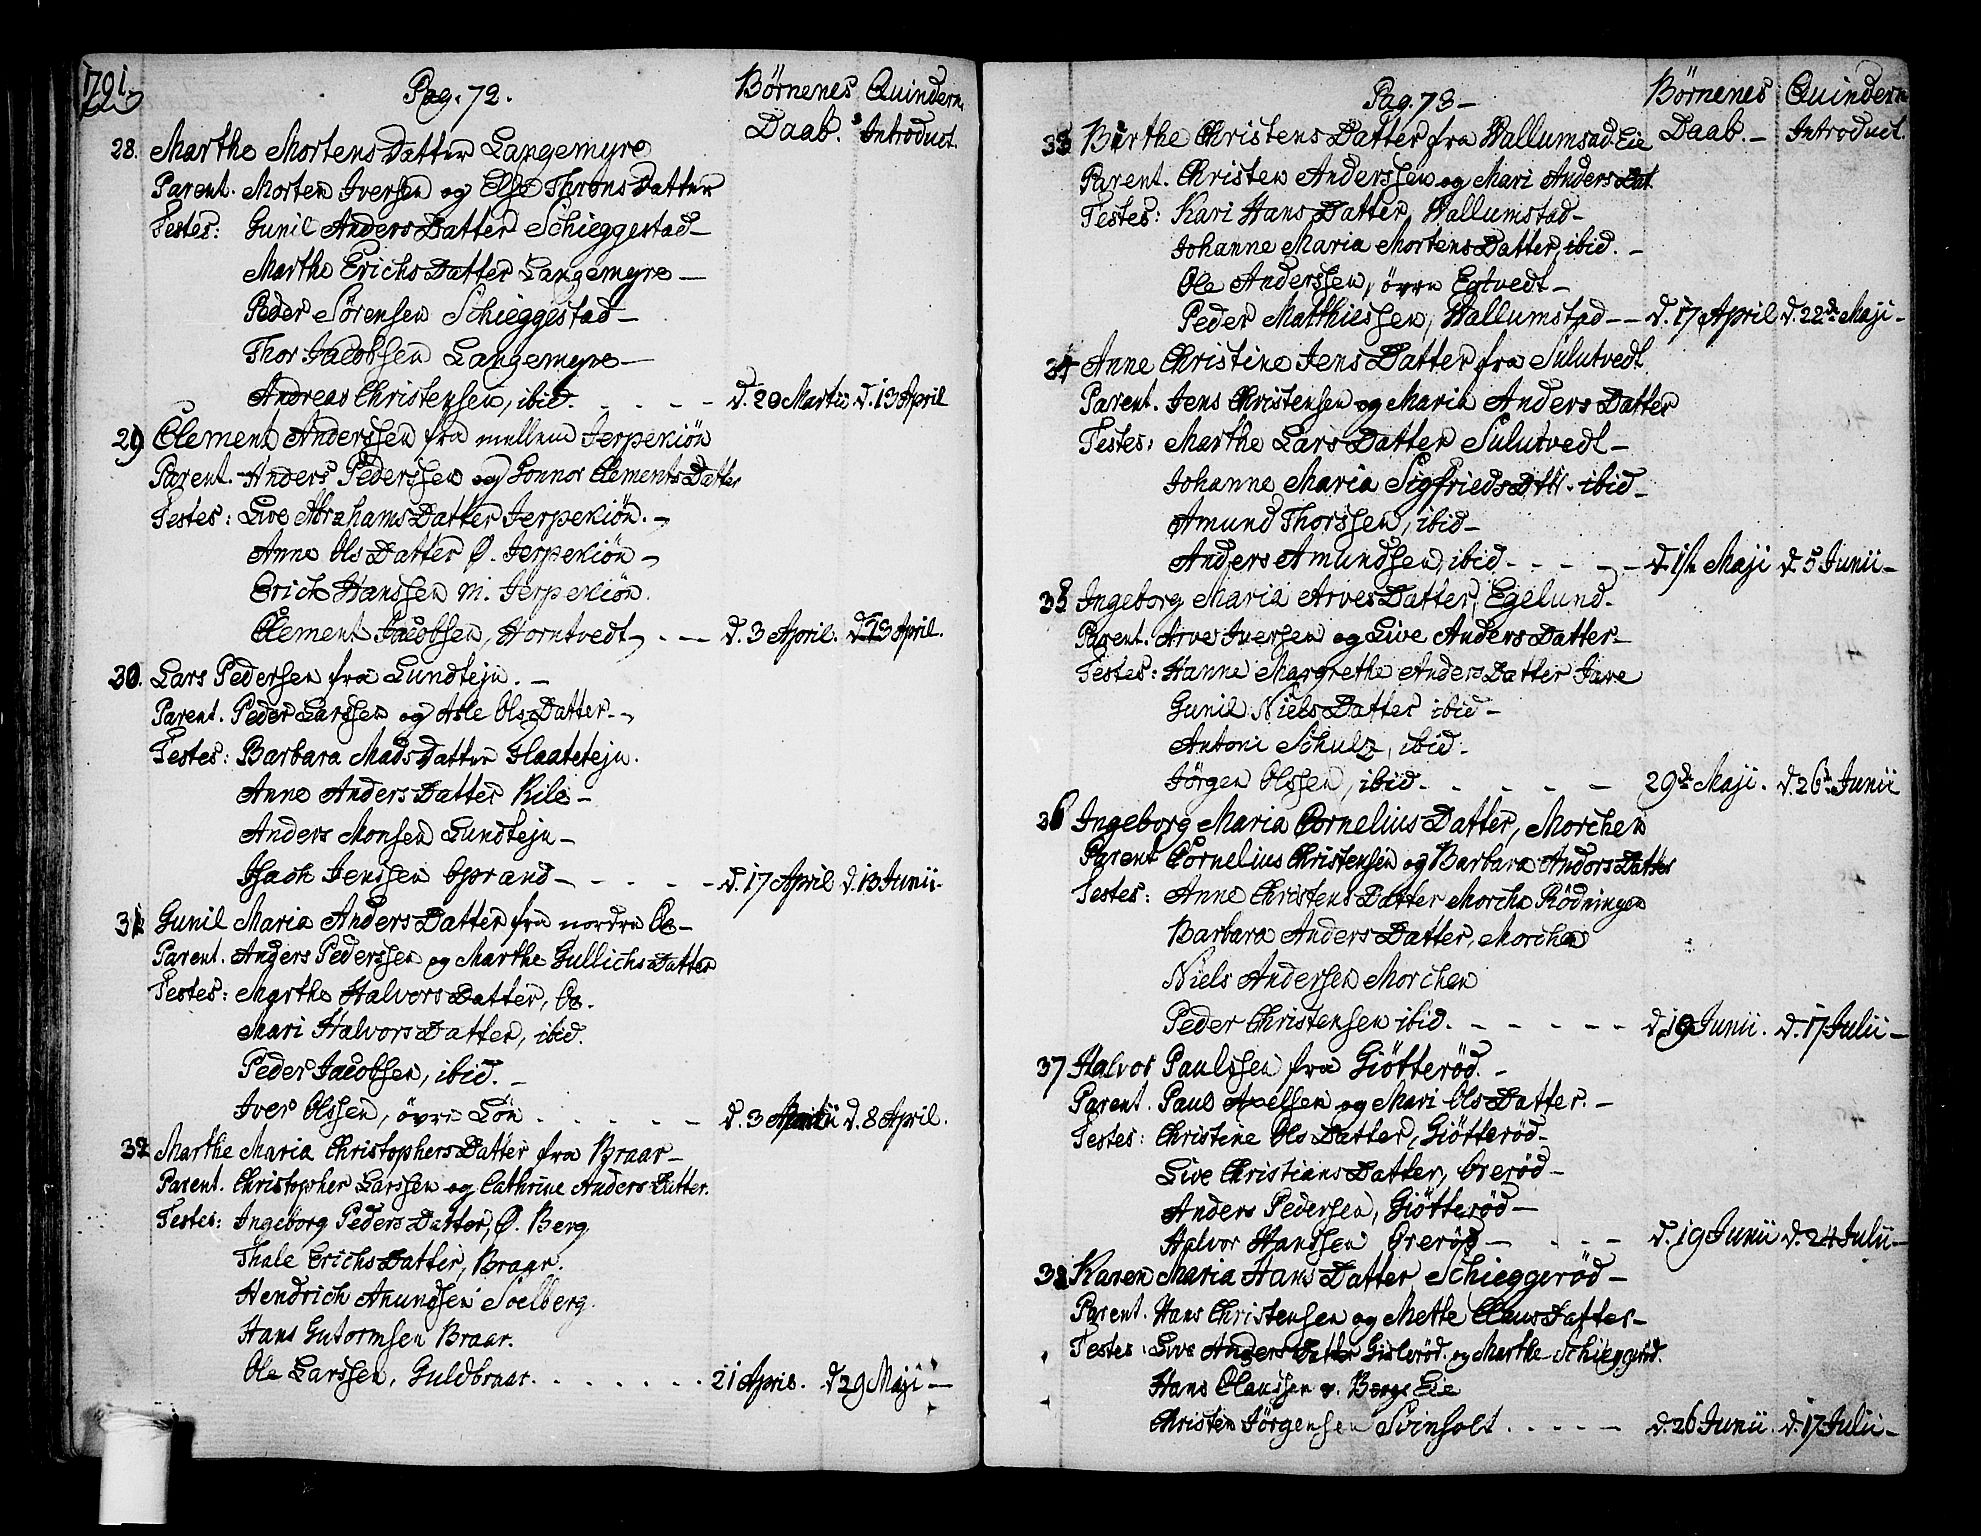 1791.
Pag. 72.
Börnenes Quindern.
Daab. Introduct.
28. Marthe Mortens Datter Langemyre
Parent. Morten Iversen og Else Throns Datter
Testes: Gunil Anders Datter Schieggestad
Marthe Erichs Datter Langemyre
Peder Sörensen Schieggestad
Thor Jacobsen Langemyre
Andreas Christensen, ibid. d. 20 Martii d. 13 April
29 Clement Anderssen fra mellem Jerpekiön
Parent. Anders Pederssen og Gonnor Clements Datter
Testes: Live Abrahams Datter Jerpekiön.
Anne Ols Datter Ø. Jerpekiön
Erich Hanssen m. Jerpekiön.
Clement Jacobsen, Horntvedt d. 3 April. d. 13 April.
30. Lars Pedersen fra Lundteju.
Parent. Peder Larssen og Asle Ols Datter
Testes: Barbara Mads Datter Flaateteju.
Anne Anders Datter Rile
Anders Monsen Lundteju
Isach Jenssen Oprand d. 17 April d. 13 Junii
31 Gunil Maria Anders Datter fra nordre Oe
Parent. Anders Pederssen og Marthe Gullichs Datter
Testes: Marthe Halvors Datter, Oe.
Mari Halvors Datter, ibid.
Peder Jacobsen, ibid.
Iver Olssen, övre Lön d. 3 d. 8 April.
32 Marthe Maria Christophers Datter fra Braar
Parent. Christopher Larssen og Cathrine Anders Datter.
Testes: Ingeborg Peders Datter, Ø. Berg
Thale Erichs Datter, Braar.
Hendrich Anundsen Soelberg.
Hans Gutormsen Braar.
Ole Larssen, Guldbraar. 21 April. d. 29 Maji
Pag. 73
Börnenes Quindern
Daab. Introduct.
33 Birthe Christens Datter fra Wallumsad. Eie
Parent. Christen Anderssen og Mari Anders Dat
Testes: Kari Hans Datter, Wallumstad
Johanne Maria Mortens Datter, ibid.
Ole Anderssen, övre Egtvedt
Peder Matthiessen, Wallumstad d. 17 April d. 22de Maji
34 Anne Christine Jens Datter fra Sulutvedt
Parent. Jens Christensen og Maria Anders Datter
Testes: Marthe Lars Datter Sulutvedt
Johanne Maria Sigfrieds Dttr. ibid
Amund Thorssen, ibid
Anders Amundsen, ibid. d. 1ste Maji d. 5 Junii
35 Ingeborg Maria Arves Datter, Egelund.
Parent. Arve Iversen og Live Anders Datter
Testes: Hanne Margrethe Anders Datter Jare
Gunil Niels Datter ibid
Antoni Schulz, ibid.
Jörgen Olssen, ibid. 29de Maji. d. 26de Junii
36 Ingeborg Maria Cornelius Datter, Morchen
Parent Cornelius Christensen og Barbara Anders Datter
Testes: Anne Christens Datter Morche Rödningen
Barbara Anders Datter, Morchen
Niels Andersen Morchen
Peder Christensen ibid. d. 19 Junii. d. 17 Julii
37 Halvor Paulssen fra Giötteröd.
Parent. Paul Axelsen og Mari Ols Datter.
Testes: Christine Ols Datter, Giötteröd
Live Christians Datter, Greröd
Anders Pedersen, Giötteröd
Halvor Hanssen Greröd d. 19 Junii d. 24 Julii
38 Karen Maria Hans Datter Schieggeröd
Parent. Hans Christensen og Mette Claus Datter
Testes: Live Anders Datter Gisleröd. og Marthe Schieggeröd.
Hans Claussen v. Bergs Eie
Christen Jörgensen Svinholt d. 26 Junii. d. 17 Julii